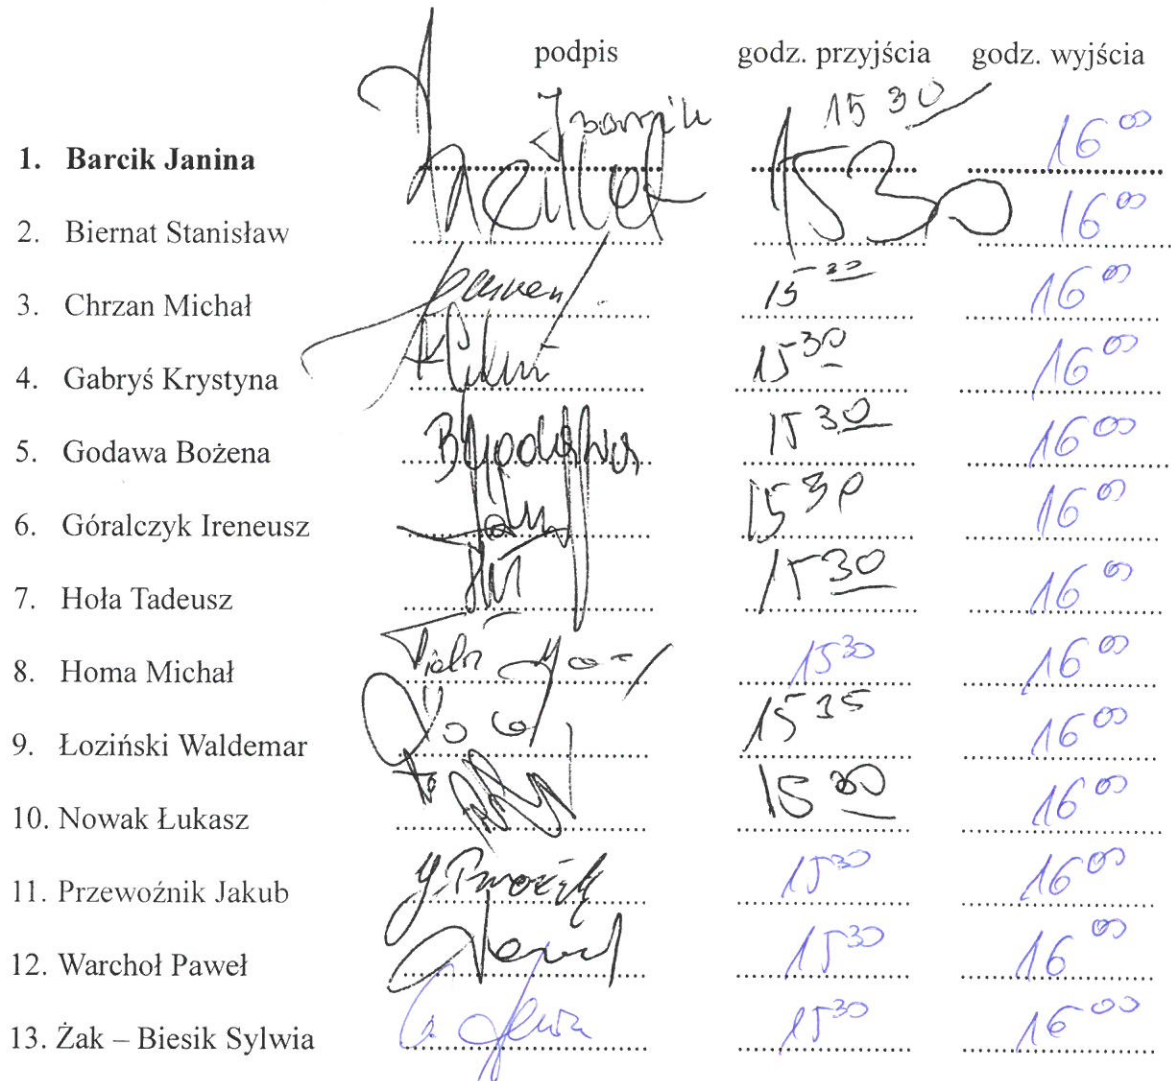 podpis godz. przyjścia godz. wyjścia
1. Barcik Janina 15 30 16 00
2. Biernat Stanisław 15 30 16 00
3. Chrzan Michał 15 30 16 00
4. Gabryś Krystyna 15 30 16 00
5. Godawa Bożena BGodawa 15 30 16 00
6. Góralczyk Ireneusz 15 30 16 00
7. Hoła Tadeusz 15 30 16 00
8. Homa Michał 15 30 16 00
9. Łoziński Waldemar 15 35 16 00
10. Nowak Łukasz 15 30 16 00
11. Przewoźnik Jakub 15 30 16 00
12. Warchoł Paweł 15 30 16 00
13. Żak – Biesik Sylwia 15 30 16 00